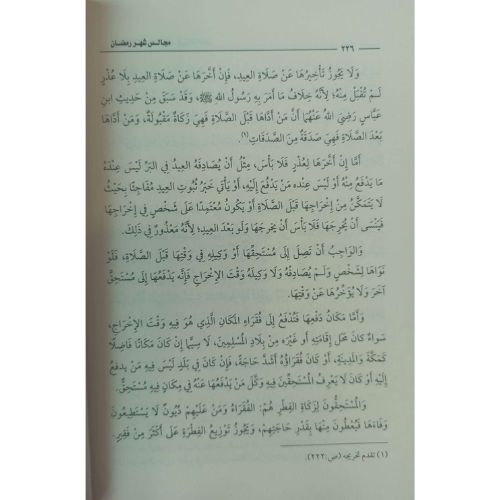 ٢٢٦ مجالس شهر رمضان
وَلَا يَجُوزُ تَأْخِيرُهَا عَنْ صَلَاةِ العِيدِ، فَإِنْ أَخَّرَهَا عَنْ صَلَاةِ العِيدِ بِلَا عُذْرٍ
لَمْ تُقْبَلْ مِنْهُ؛ لِأَنَّهُ خِلَافُ مَا أَمَرَ بِهِ رَسُولُ اللهِ ﷺ، وَقَدْ سَبَقَ مِنْ حَدِيثِ ابنِ
عَبَّاسٍ رَضِيَ اللهُ عَنْهُمَا أَنَّ مَنْ أَدَّاهَا قَبْلَ الصَّلَاةِ فَهِيَ زَكَاةٌ مَقْبُولَةٌ، وَمَنْ أَدَّاهَا
بَعْدَ الصَّلَاةِ فَهِيَ صَدَقَةٌ مِنَ الصَّدَقَاتِ(١).
أَمَّا إِنْ أَخَّرَهَا لِعُذْرٍ فَلَا بَأْسَ، مِثْلُ أَنْ يُصَادِفَهُ العِيدُ فِي البَرِّ لَيْسَ عِنْدَهُ
مَا يَدْفَعُ مِنْهُ أَوْ لَيْسَ عِنْدَه مَنْ يَدْفَعُ إِلَيْهِ، أَوْ يَأْتِي خَبَرُ ثُبُوتِ العِيدِ مُفَاجِئًا بِحَيْثُ
لَا يَتَمَكَّنُ مِنْ إِخْرَاجِهَا قَبْلَ الصَّلَاةِ أَوْ يَكُونُ مُعْتَمِدًا عَلَى شَخْصٍ فِي إِخْرَاجِهَا
فَيَنْسَى أَنْ يُخْرِجَهَا فَلَا بَأْسَ أَنْ يُخرِجَهَا وَلَو بَعْدَ العِيدِ؛ لِأَنَّهُ مَعْذُورٌ فِي ذَلِكَ.
وَالوَاجِبُ أَنْ تَصِلَ إِلَى مُسْتَحِقِّهَا أَوْ وَكِيلِهِ فِي وَقْتِهَا قَبْلَ الصَّلَاةِ، فَلَوْ
نَوَاهَا لِشَخْصٍ وَلَمْ يُصَادِفْهُ وَلَا وَكِيلَهُ وَقْتَ الإِخْرَاجِ فَإِنَّه يَدْفَعُهَا إِلَى مُسْتَحِقٍّ
آخَرَ وَلَا يُؤَخِّرُهَا عَنْ وَقْتِهَا.
وَأَمَّا مَكَانُ دَفْعِهَا فَتُدْفَعُ إِلَى فُقَرَاءِ المَكَانِ الَّذِي هُوَ فِيهِ وَقْتَ الإِخْرَاجِ،
سَوَاءٌ كَانَ مَحَلَّ إِقَامَتِهِ أَوْ غَيْرَه مِنْ بِلَادِ المُسْلِمِينَ، لَا سِيَّمَا إِنْ كَانَ مَكَانًا فَاضِلًا
كَمَكَّةَ وَالمَدِينَةِ، أَوْ كَانَ فُقَرَاؤُهُ أَشَدَّ حَاجَةً، فَإِنْ كَانَ فِي بَلَدٍ لَيْسَ فِيهِ مَنْ يَدفعُ
إِلَيْهِ أَوْ كَانَ لَا يَعْرِفُ المُسْتَحِقِّينَ فِيهِ وَكَّلَ مَنْ يَدْفَعُهَا عَنْهُ فِي مَكَانٍ فِيهِ مُسْتَحِقٌّ.
وَالمُسْتَحِقُّونَ لِزَكَاةِ الفِطْرِ هُمْ: الفُقَرَاءُ وَمَنْ عَلَيْهِمْ دُيُونٌ لَا يَسْتَطِيعُونَ
وَفَاءَهَا فَيُعْطَوْنَ مِنْهَا بِقَدْرِ حَاجَتِهِمْ، وَيَجُوزُ تَوْزِيعُ الفِطْرَةِ عَلَى أَكْثَرَ مِنْ فَقِيرٍ.
(١) تقدم تخريجه (ص:٢٢٢).